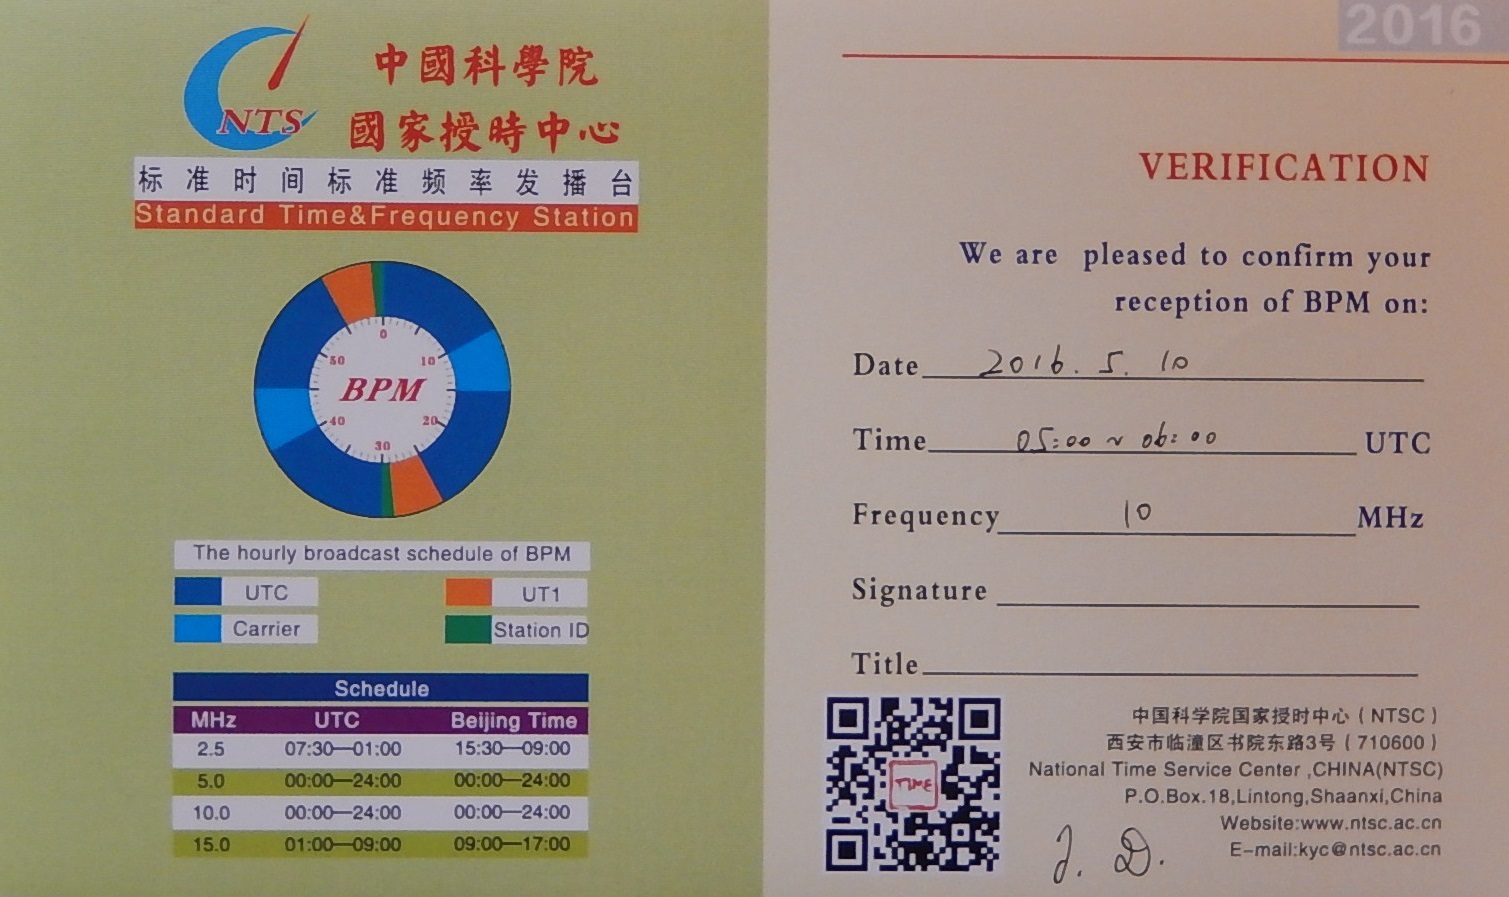 NTS
中國科學院
國家授時中心
标准时间标准频率发播台
Standard Time&Frequency Station
0
50 10
BPM
40 20
30
The hourly broadcast schedule of BPM
UTC UT1
Carrier Station ID
Schedule
MHz UTC Beijing Time
2.5 07:30—01:00 15:30—09:00
5.0 00:00—24:00 00:00—24:00
10.0 00:00—24:00 00:00—24:00
15.0 01:00—09:00 09:00—17:00
2016
VERIFICATION
We are pleased to confirm your
reception of BPM on:
Date 2016. 5. 10
Time 05:00 ~ 06:00 UTC
Frequency 10 MHz
Signature
Title
TIME
中国科学院国家授时中心（NTSC）
西安市临潼区书院东路3号（710600）
National Time Service Center ,CHINA(NTSC)
P.O.Box.18,Lintong,Shaanxi,China
Website:www.ntsc.ac.cn
E-mail:kyc@ntsc.ac.cn
J. D.